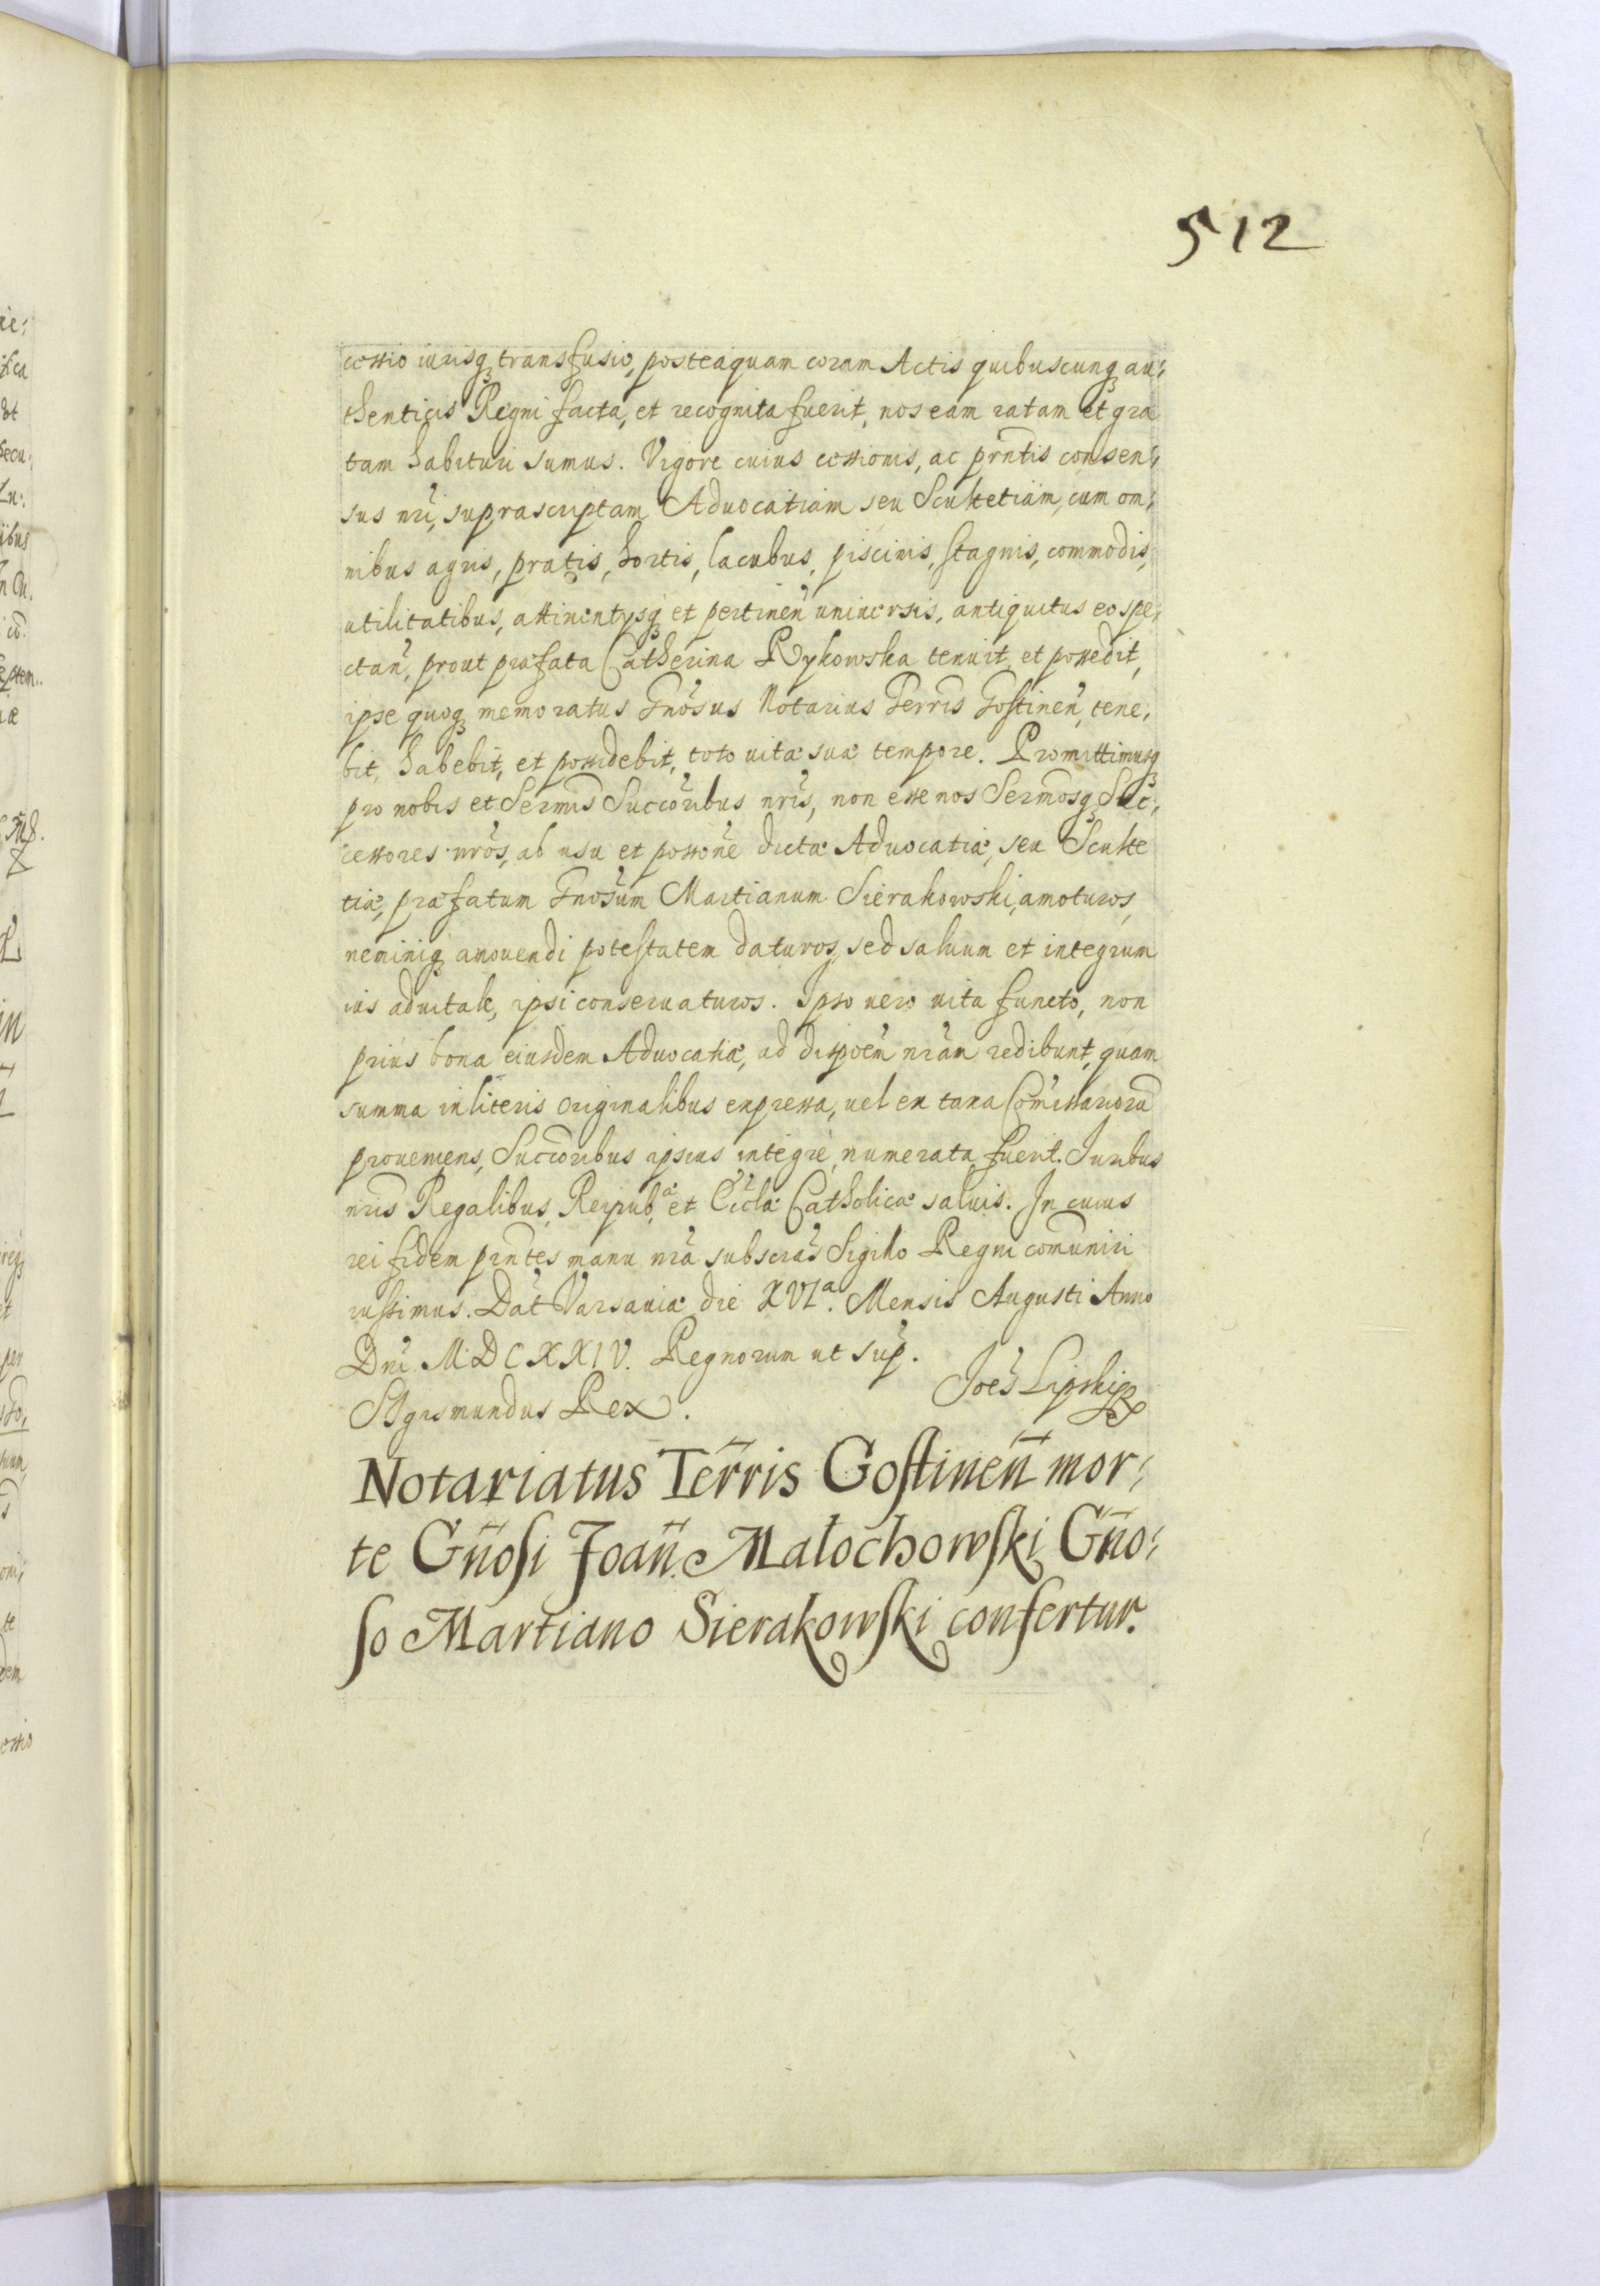 512
cessio iurisq transfusio, posteaquam coram Actis quibuscunq au:
thenticis Regni facta, et recognita fuerit, nos eam ratam et gra
tam habituri sumus. Vigore cuius cessionis, ac prntis consen:
sus nri, suprascriptam Advocatiam seu Scultetiam, cum om:
nibus agris, pratis, hortis, lacubus, piscinis, stagnis, commodis,
utilitatibus, attinentijsq et pertinen universis, antiquitus eo spe:
ctan, prout præfata Catherina Rykowska tenuit, et possedit,
ipse quoq memoratus Gnosus Notarius Terris Gostinen, tene:
bit, habebit, et possidebit, toto vitæ suæ tempore. Promittimusq
pro nobis et Sermis Succoribus nris, non esse nos Sermosq Suc:
cessores nros, ab usu et possone dictæ Advocatiæ, seu Sculte
tiæ, præfatum Gnosum Martianum Sierakowski, amoturos,
neminiq amovendi potestatem daturos, sed saluum et integrum
ius aduitale, ipsi conseruaturos. Ipso vero vita functo, non
prius bona eiusdem Advocatiæ, ad dispoem nram redibunt, quam
summa in literis originalibus expressa, vel ex taxa Comissarioru
proueniens, Succoribus ipsius integre, numerata fuerit. Juribus
nris Regalibus, Reipub.æ et Eccla Catholicæ saluis. In cuius
rei fidem prntes manu nra subscras Sigillo Regni comuniri
iussimus. Dat Varsaviæ die XVIa. Mensis Augusti Anno
Dni MDCXXIV. Regnorum ut sup.
Sigismundus Rex. Joes Lipski
Notariatus Terris Gostinen mor:
te Gnosi Joan. Małochowski Gno:
so Martiano Sierakowski confertur.